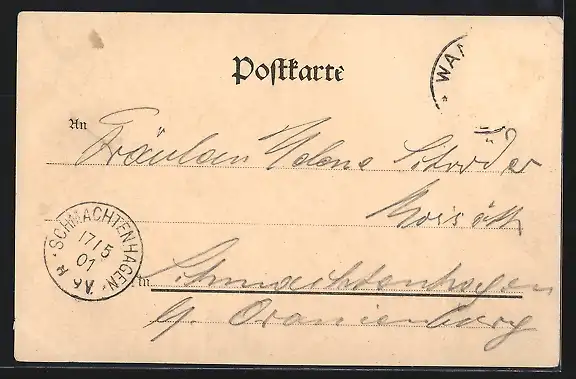 Postkarte
WAA
An
Fräulein Helene Schröder
SCHMACHTENHAGEN
17/5
01
in
Schmachtenhagen
b/ Oranienburg